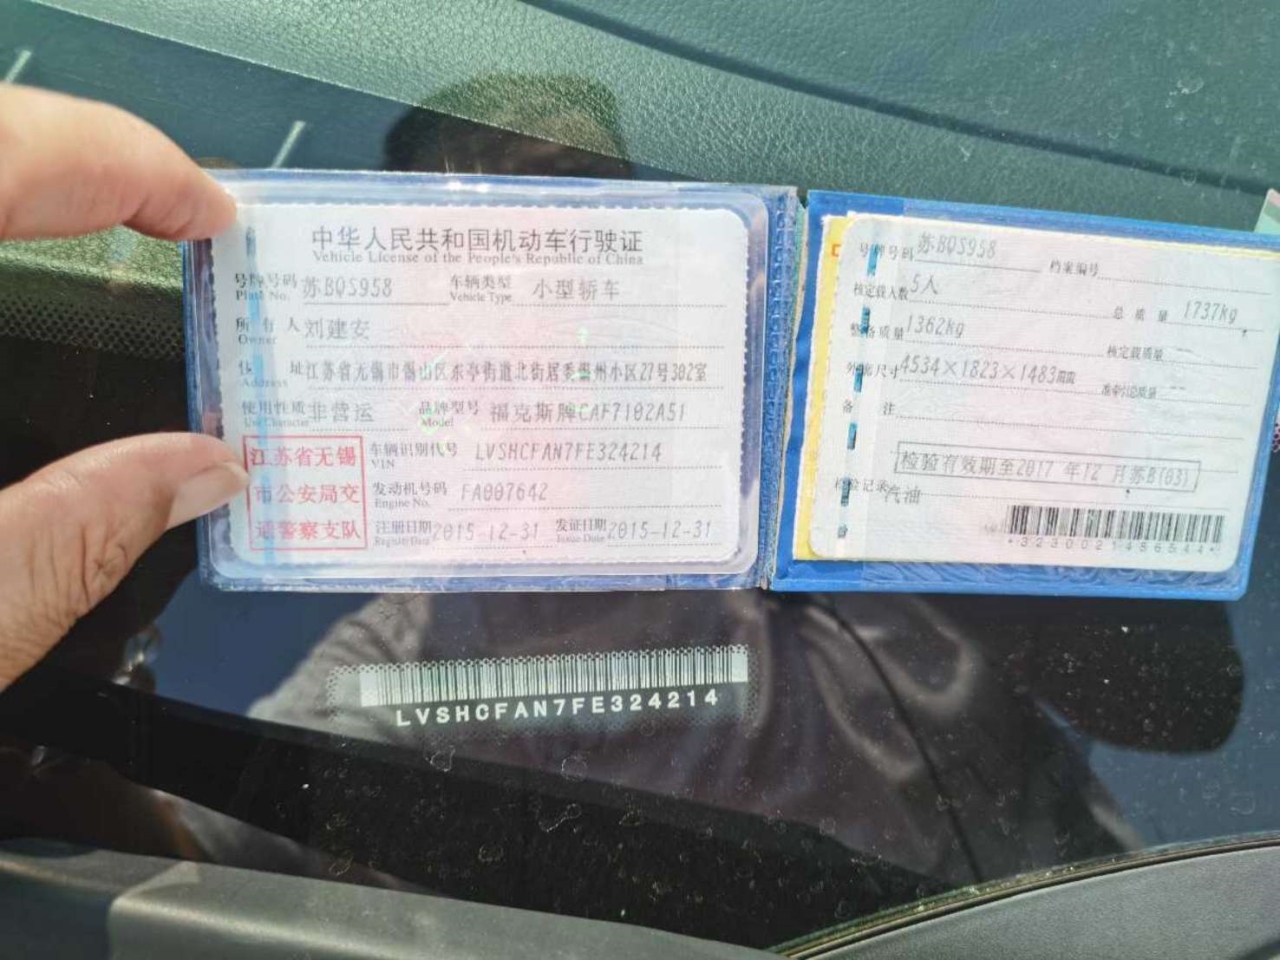 中华人民共和国机动车行驶证
Vehicle License of the People's Republic of China
号牌号码 苏BQS958 车辆类型 小型轿车
Plate No. Vehicle Type
所有人 刘建安
Owner
住 址 江苏省无锡市锡山区东亭街道北街居委 州小区27号302室
Address
使用性质 非营运 品牌型号 福克斯牌CAF7102A51
Use Character Model
江苏省无锡
市公安局交
通警察支队
车辆识别代号 LVSHCFAN7FE324214
VIN
发动机号码 FA007642
Engine No.
注册日期 2015-12-31 发证日期 2015-12-31
Register Date Issue Date
号牌号码 苏BQS958 档案编号
核定载人数 5人 总质量 1737kg
整备质量 1362kg 核定载质量 --
外廓尺寸 4534×1823×1483mm 准牵引总质量 --
备 注
检验有效期至2017 年12 月苏B(03)
检验记录 汽油
*3230021486544*
LVSHCFAN7FE324214